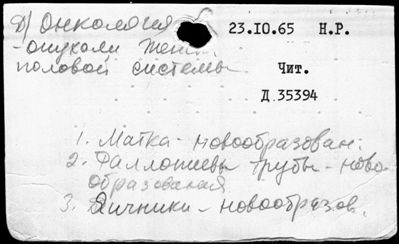 Д) Онкология
23.IO.65 Н.Р.
-опухоли женс.
половой системы
Чит.
Д.35394
1. Матка - новообразован.
2. Фаллопиевы трубы - ново-
образования
3. Яичники - новообразов.